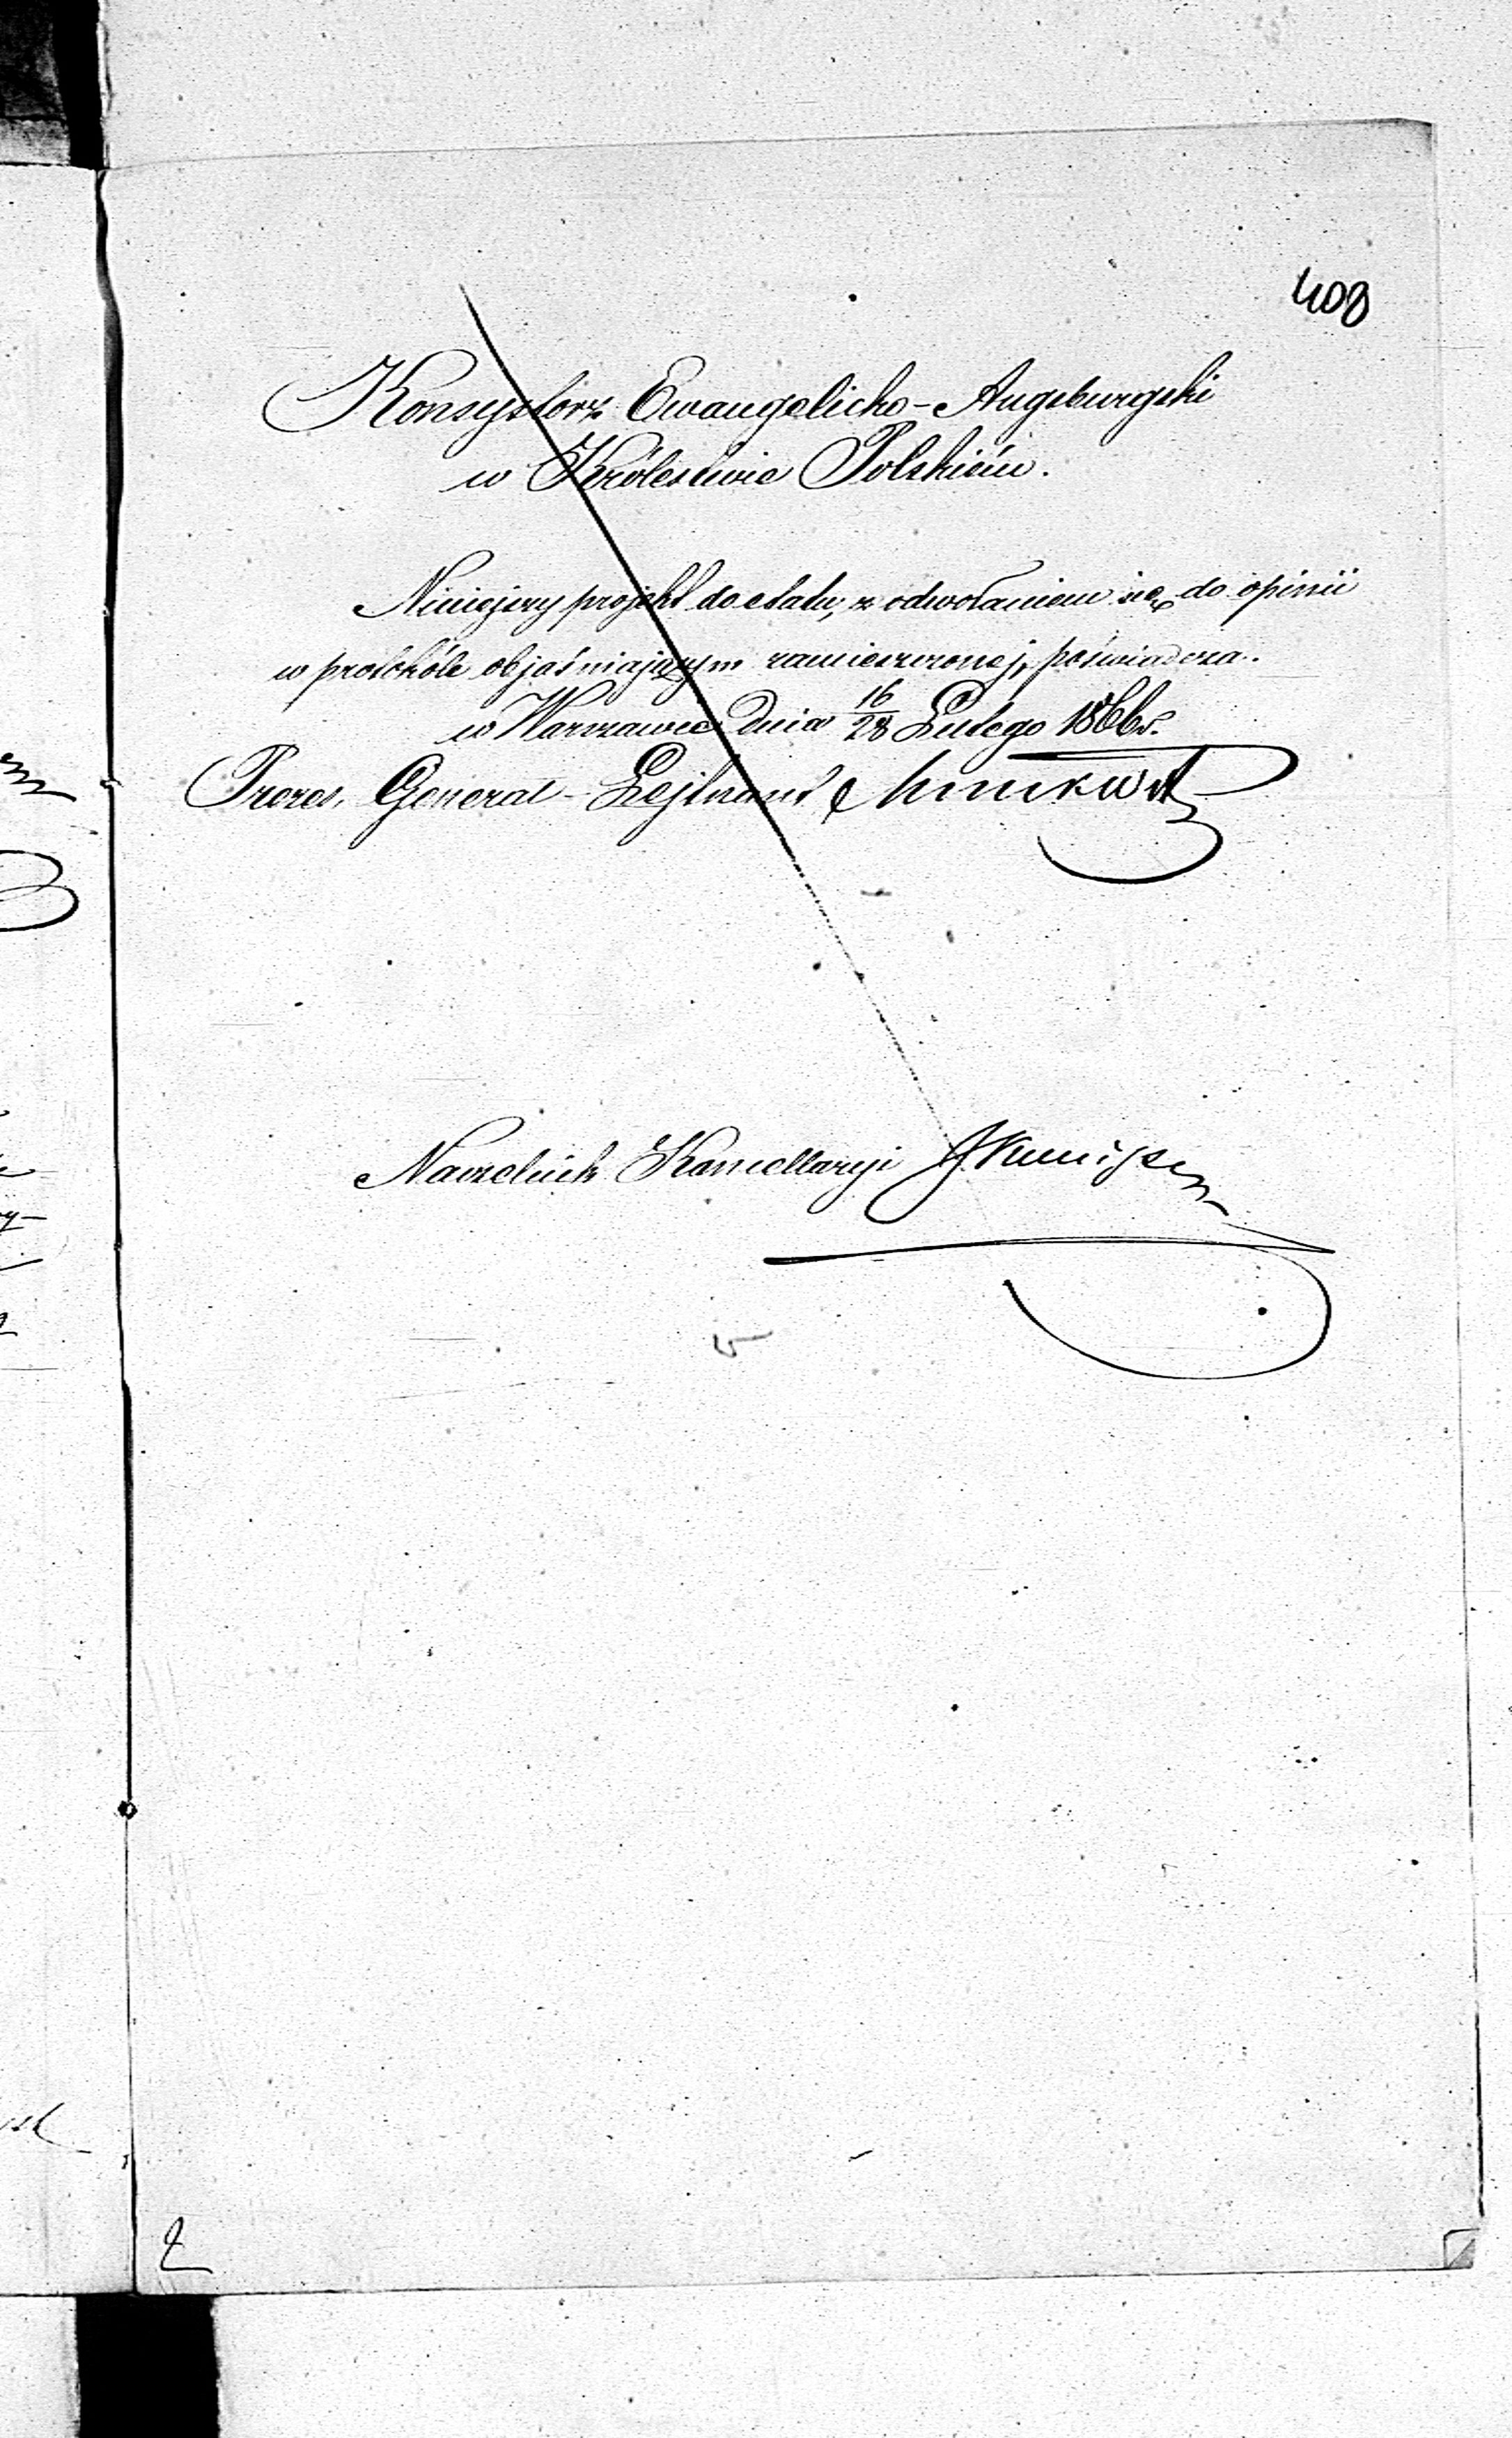 408
Konsystorz Ewangelicko-Augsburgski
w Królestwie Polskiém.
Niniejszy projekt do etatu, z odwołaniem się do opinii
w protokóle objaśniającym zamieszczonej, poświadcza.
w Warszawie dnia 16/28 Lutego 1866 r.
Prezes, General-Lejtnant
Naczelnik Kancellaryi
2